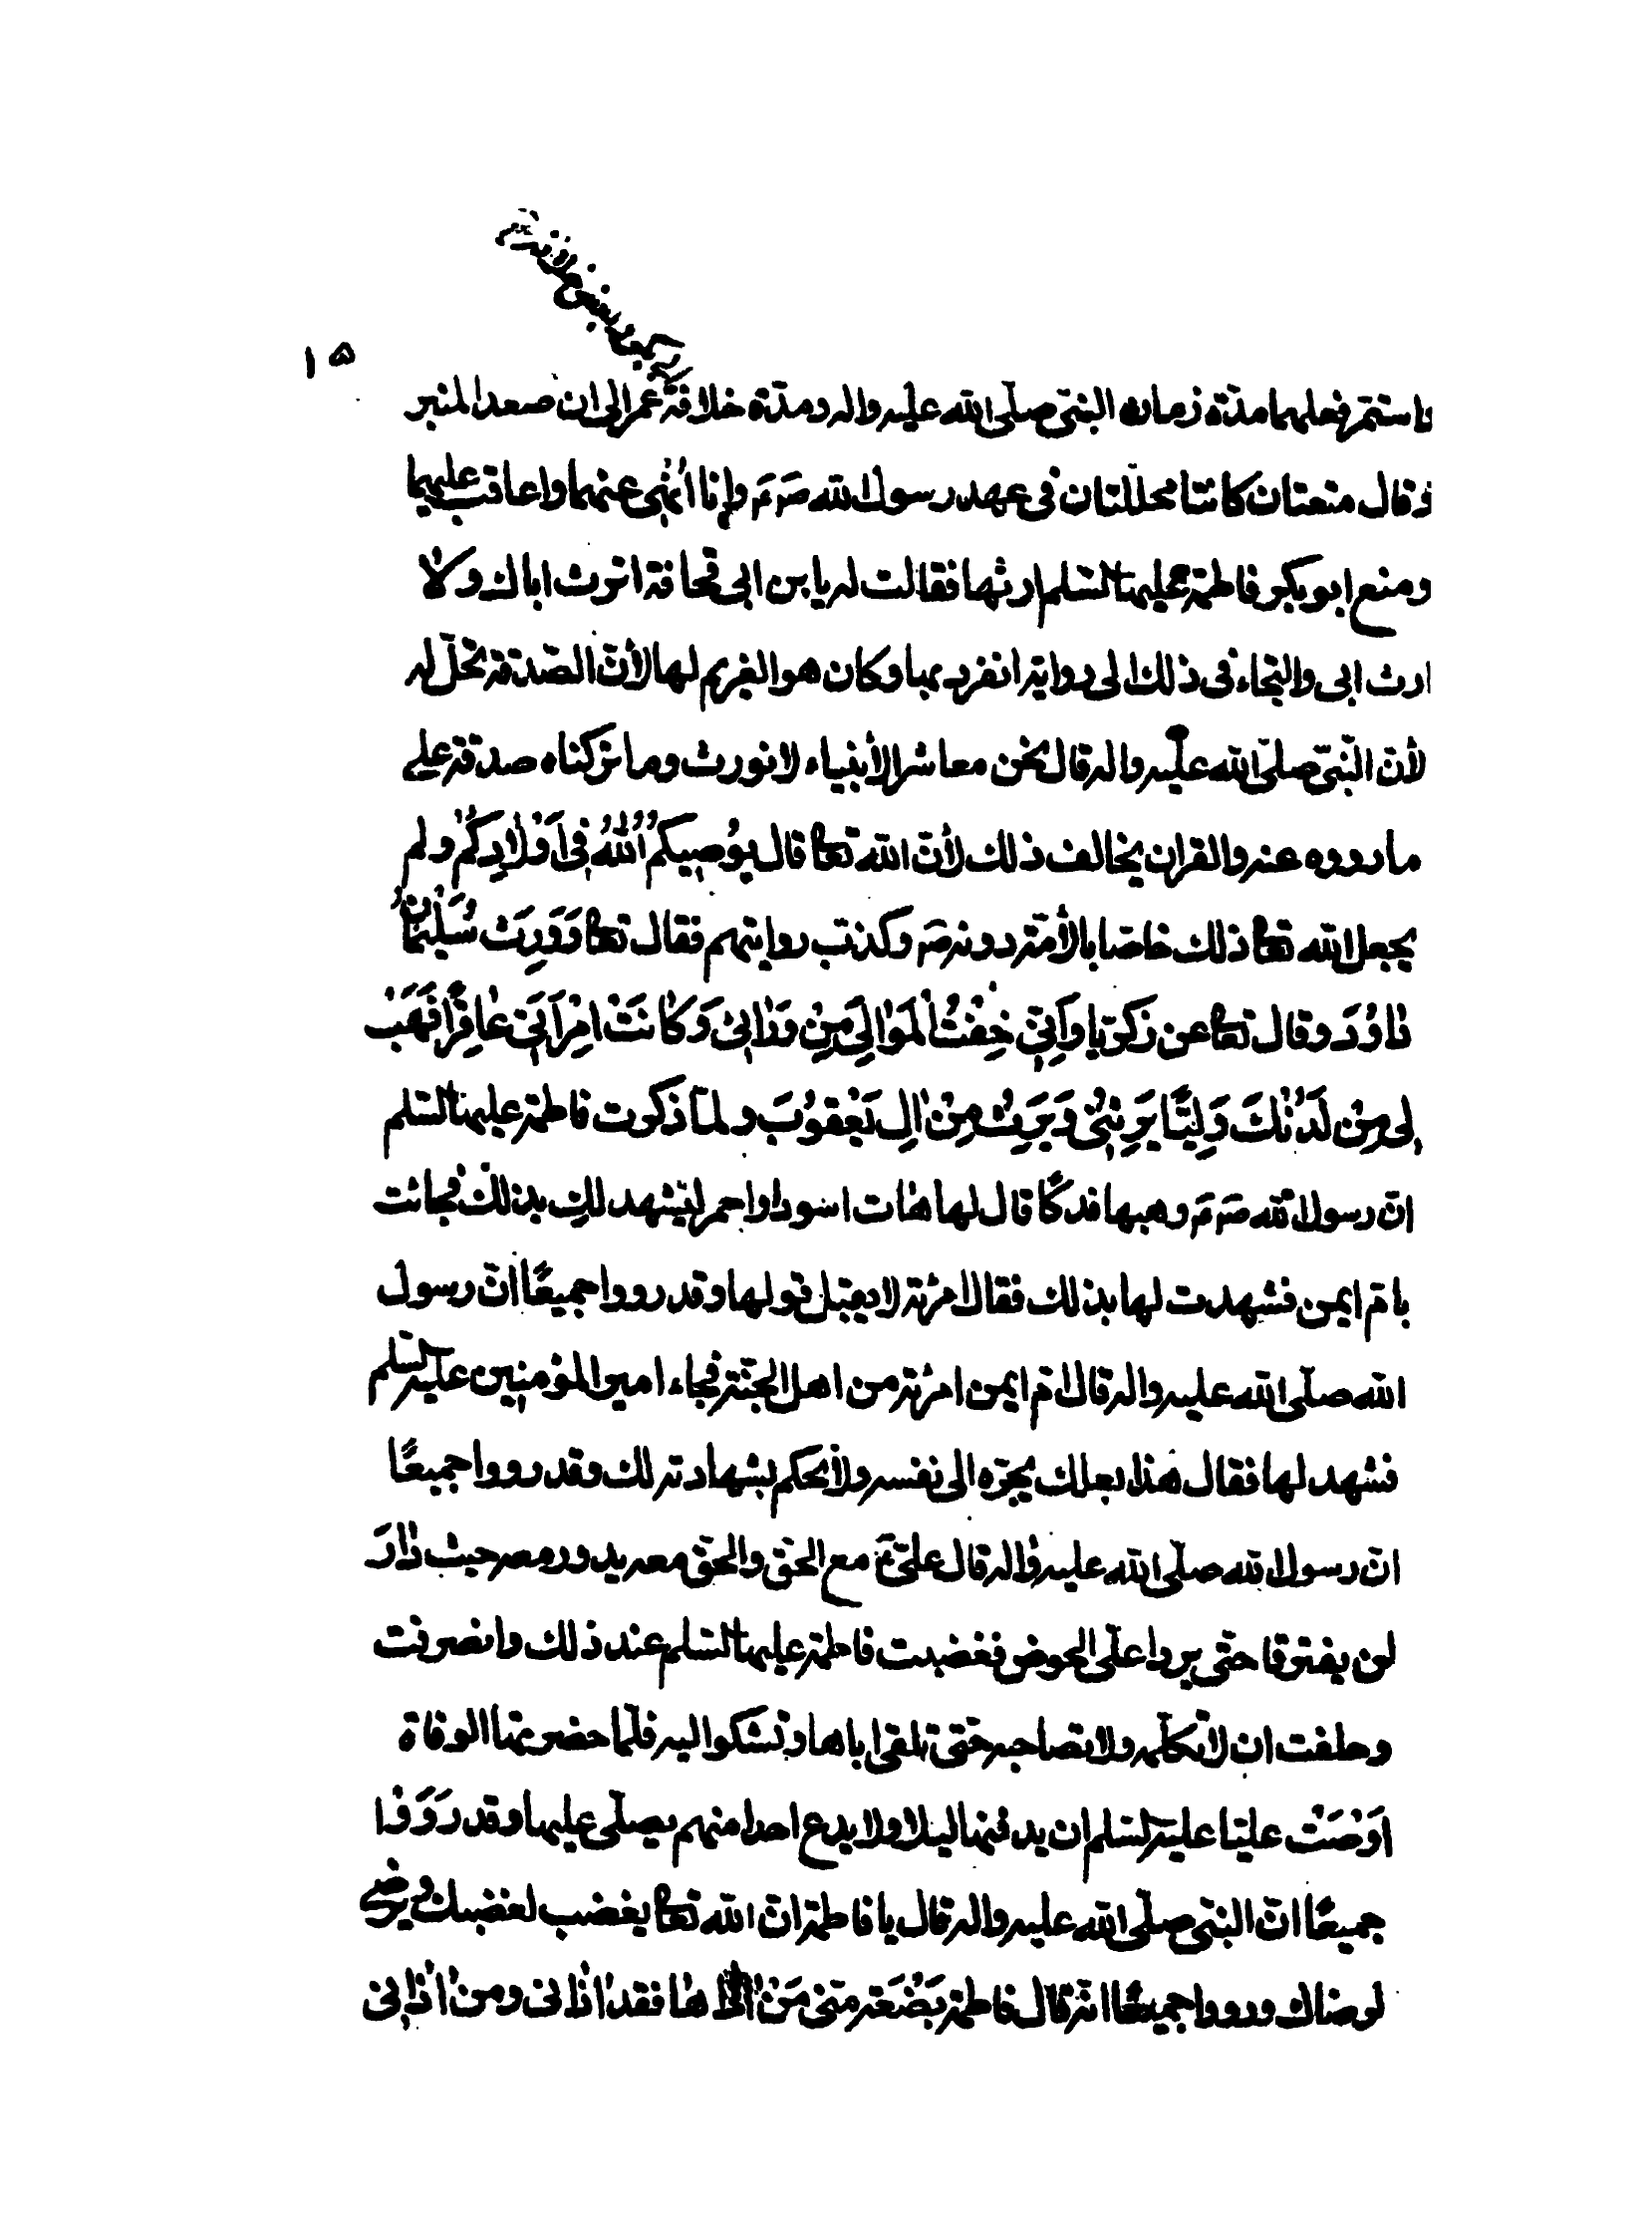 ١٥
واستمر فعلهما مدّة زمان النبىّ صلّى الله عليه واله ومدّة خلافة عمر الى ان صعد المنبر
وقال متعتان كانتا محلّلتان فى عهد رسول الله ص م وانا انهى عنهما واعاقب عليهما
ومنع ابو بكر فاطمة عليها السّلم ارثها فقالت له يابن ابى قحافة اترث اباك ولا
ارث ابى والتجاء فى ذلك الى رواية انفرد بها وكان هو الغريم لها لأنّ الصّدقة تحلّ له
لأنّ النّبىّ صلّى الله عليه واله قال نحن معاشر الأنبياء لا نورث وما تركناه صدقة على
ما رووه عنه والقران يخالف ذلك لأنّ الله تعا قال يُوصِيكُمُ اللهُ فِى اَوْلادِكُمْ ولم
يجعل الله تعا ذلك خاصّا بالأمّة دونه ص وكذب روايتهم فقال تعا وَوَرِثَ سُلَيْمانُ
داوُدَ وقال تعا عن زكريّا وَاِنّى خِفْتُ الْمَوالِىَ مِنْ وَرائى وَكانَتْ امْرَاَتى عاقِرًا فَهَبْ
لى مِنْ لَدُنْكَ وَلِيًّا يَرِثُنى وَيَرِثُ مِنْ الِ يَعْقُوبَ ولمّا ذكرت فاطمة عليها السّلم
انّ رسول الله ص م وهبها فدكًا قال لها هات اسود او احمر ليشهد لك بذلك فجائت
بامّ ايمن فشهدت لها بذلك فقال امرئة لا يقبل قولها وقد رووا جميعًا انّ رسول
الله صلّى الله عليه واله قال امّ ايمن امرئة من اهل الجنّة فجاء امير المؤمنين عليه السّلم
فشهد لها فقال هذا بعلك يجرّه الى نفسه ولا نحكم بشهادته لك وقد رووا جميعًا
انّ رسول الله صلّى الله عليه واله قال علىّ ع مع الحقّ والحقّ معه يدور معه حيث دارَ
لن يفترقا حتّى يردا علىّ الحوض فغضبت فاطمة عليها السّلم عند ذلك وانصرفت
وحلفت ان لا تكلّمه ولا تصاحبه حتّى تلقى اباها وتشكوا اليه فلمّا حضرتها الوفاة
اَوْصَتْ عليّا عليه السّلم ان يدفنها ليلا ولا يدع احدا منهم يصلّى عليها وقد رَوَوْا
جميعًا انّ النبىّ صلّى الله عليه واله قال يا فاطمة انّ الله تعا يغضب لغضبك ويرضى
لرضاك ورووا جميعًا انّه قال فاطمة بَضْعَة منّى مَنْ اذاها فقد اذانى ومن اذانى